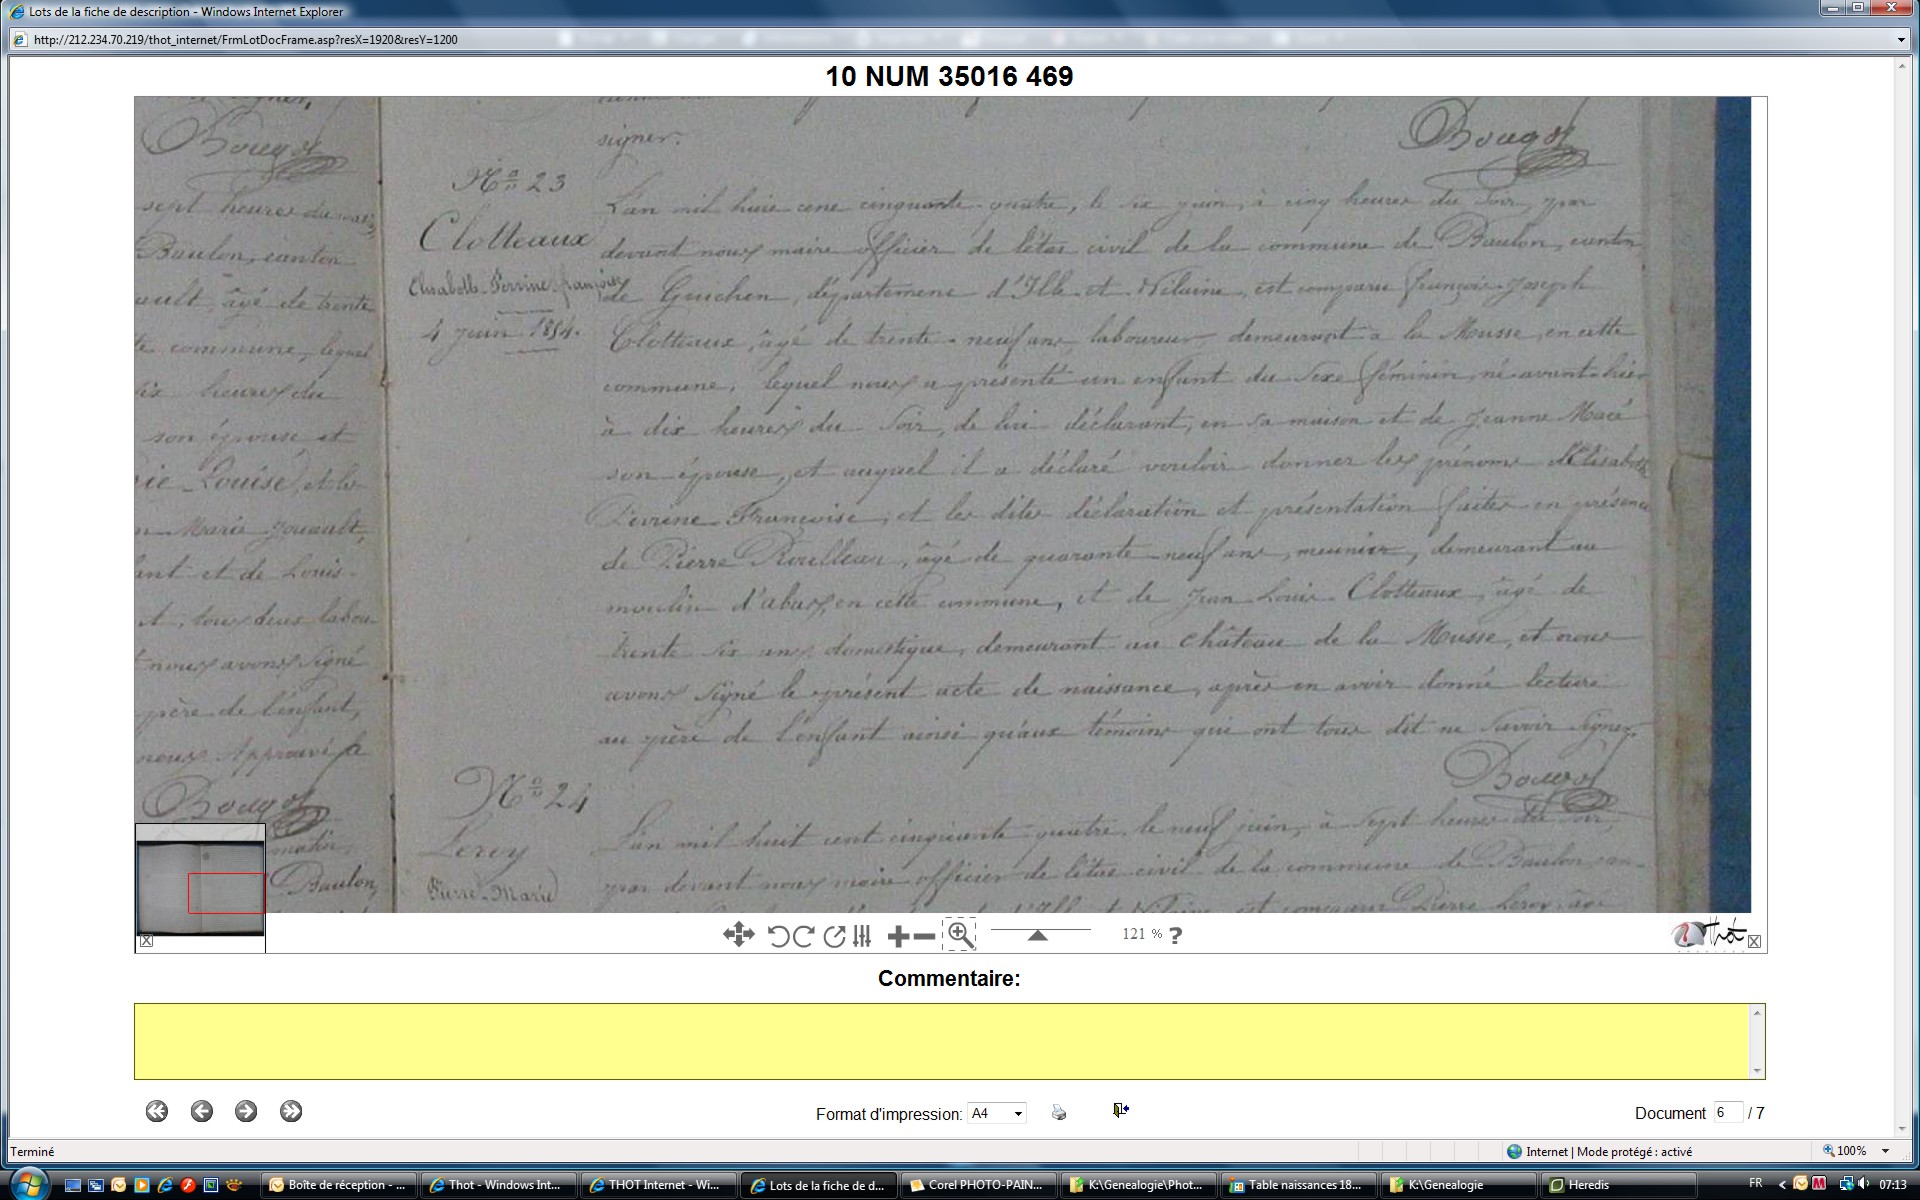 Lots de la fiche de description - Windows Internet Explorer
http://212.234.70.219/thot_internet/FrmLotDocFrame.asp?resX=1920&resY=1200
10 NUM 35016 469
signer.
Bougot
Bougot
sept heures du
Baulon, canton
âgé de trente
commune, lequel
heures du
son épouse et
Louise, et les
Marie Jouault,
et de Louis
tous deux labou-
nous avons signé
père de l'enfant,
nous Approuvé la
Bougot
matin,
Baulon,
N° 23
Clotteaux
Elisabeth Perrine françoise
4 juin 1854.
L'an mil huit cent cinquante-quatre, le six juin, à cinq heures du soir, par
devant nous maire officier de l'état civil de la commune de Baulon, canton
de Guichen, département d'Ille-et-Vilaine, est comparu françois-Joseph
Clotteaux, âgé de trente-neuf ans, laboureur demeurant à la Musse, en cette
commune, lequel nous a présenté un enfant du sexe féminin, né avant-hier
à dix heures du soir, de lui déclarant, en sa maison et de Jeanne Macé
son épouse, et auquel il a déclaré vouloir donner les prénoms d'Elisabeth
Perrine Françoise, et les dites déclaration et présentation faites en présence
de Pierre Roulleau, âgé de quarante-neuf ans, meunier, demeurant au
moulin en cette commune, et de Jean Louis Clotteaux, âgé de
trente six ans, domestique, demeurant au château de la Musse, et nous
avons signé le présent acte de naissance, après en avoir donné lecture
au père de l'enfant ainsi qu'aux témoins qui ont tous dit ne savoir signer.
Bougot
N° 24
Leroy
Pierre-Marie
L'an mil huit cent cinquante-quatre, le neuf juin, à sept heures du soir,
par devant nous maire officier de l'état civil de la commune de Baulon, can-
est comparu Pierre Leroy, âgé
121 % ?
Thot
Commentaire:
Format d'impression: A4
Document 6 / 7
Terminé
Internet | Mode protégé : activé
100%
Boîte de réception - ...
Thot - Windows Int...
THOT Internet - Wi...
Lots de la fiche de d...
Corel PHOTO-PAIN...
K:\Genealogie\Phot...
Table naissances 18...
K:\Genealogie
Heredis
FR
07:13